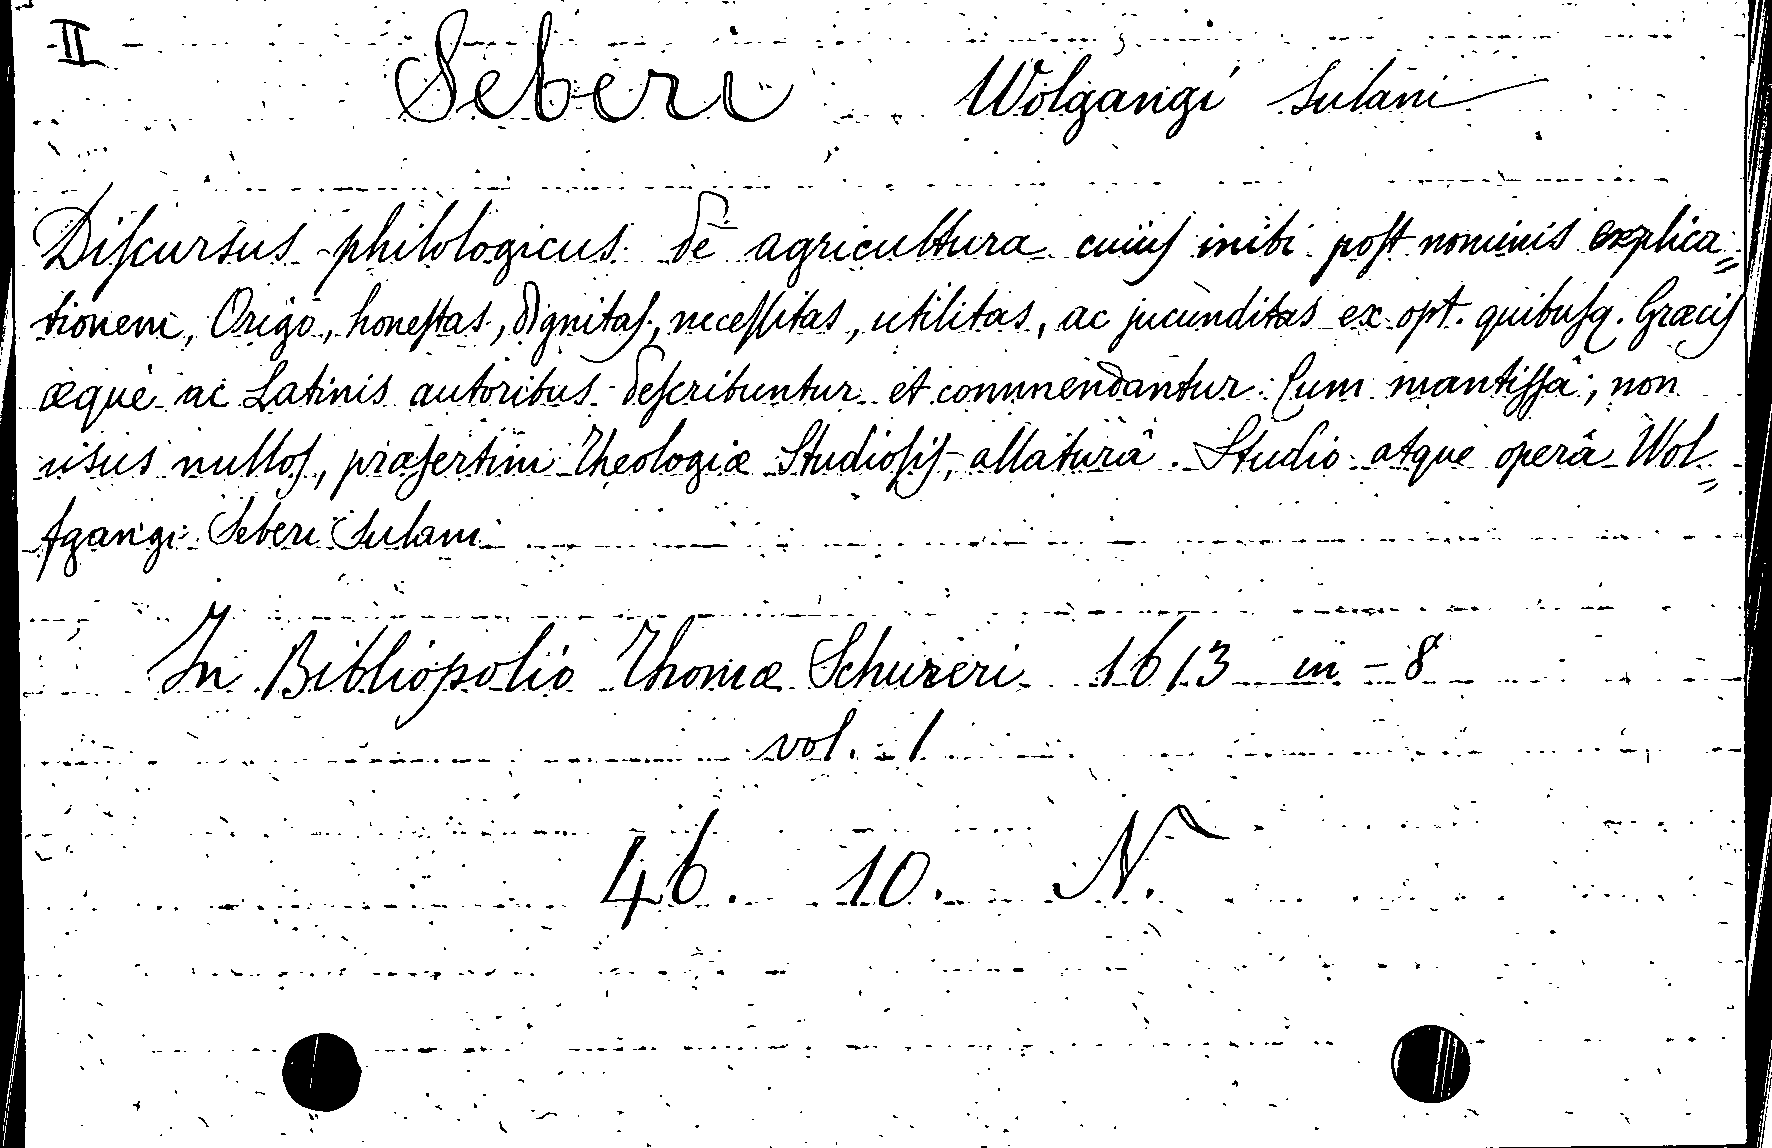 II
Seberi Wolgangi Sulani
Diſcursus philologicus de agricultura cuiuſ inibi poſt nominis explica=
tionem, Origo, honeſtas, dignitaſ, neceſſitas, utilitas, ac jucunditas ex opt. quibuſq. Græciſ
æque ac Latinis autoribus deſcribuntur et commendantur. Cum mantiſſâ, non
usus nulloſ, præſertim Theologiæ Studioſiſ, allaturâ. Studio atque operâ Wol=
fgangi Seberi Sulani
In Bibliopolio Thomæ Schureri 1613 in-8
vol. 1
46. 10. N.